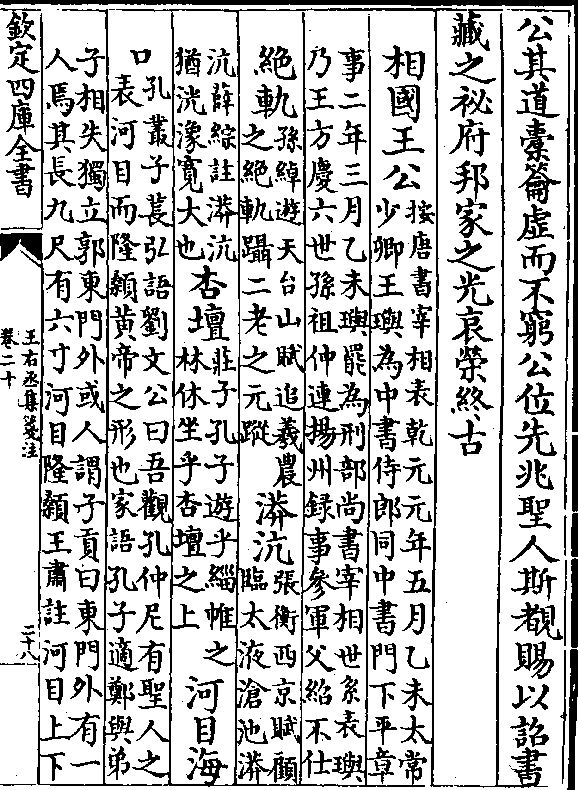 公其道槖籥虛而不窮公位先兆聖人斯覩賜以詔書
藏之祕府邦家之光哀榮終古
相國王公
按唐書宰相表乾元元年五月乙未太常
少卿王璵為中書侍郎同中書門下平章
事二年三月乙未璵罷為刑部尚書宰相世系表璵
乃王方慶六世孫祖仲連揚州録事參軍父紹不仕
絶軌
孫綽遊天台山賦追羲農
之絶軌躡二老之元蹤
漭沆
張衡西京賦顧
臨太液滄池漭
沆薛綜註漭沆
猶洸潒寛大也
杏壇
莊子孔子遊乎緇帷之
林休坐乎杏壇之上
河目海
口
孔叢子萇弘語劉文公曰吾觀孔仲尼有聖人之
表河目而隆顙黄帝之形也家語孔子適鄭與弟
子相失獨立郭東門外或人謂子貢曰東門外有一
人焉其長九尺有六寸河目隆顙王肅註河目上下
欽定四庫全書
王右丞集箋注
卷二十
二十八